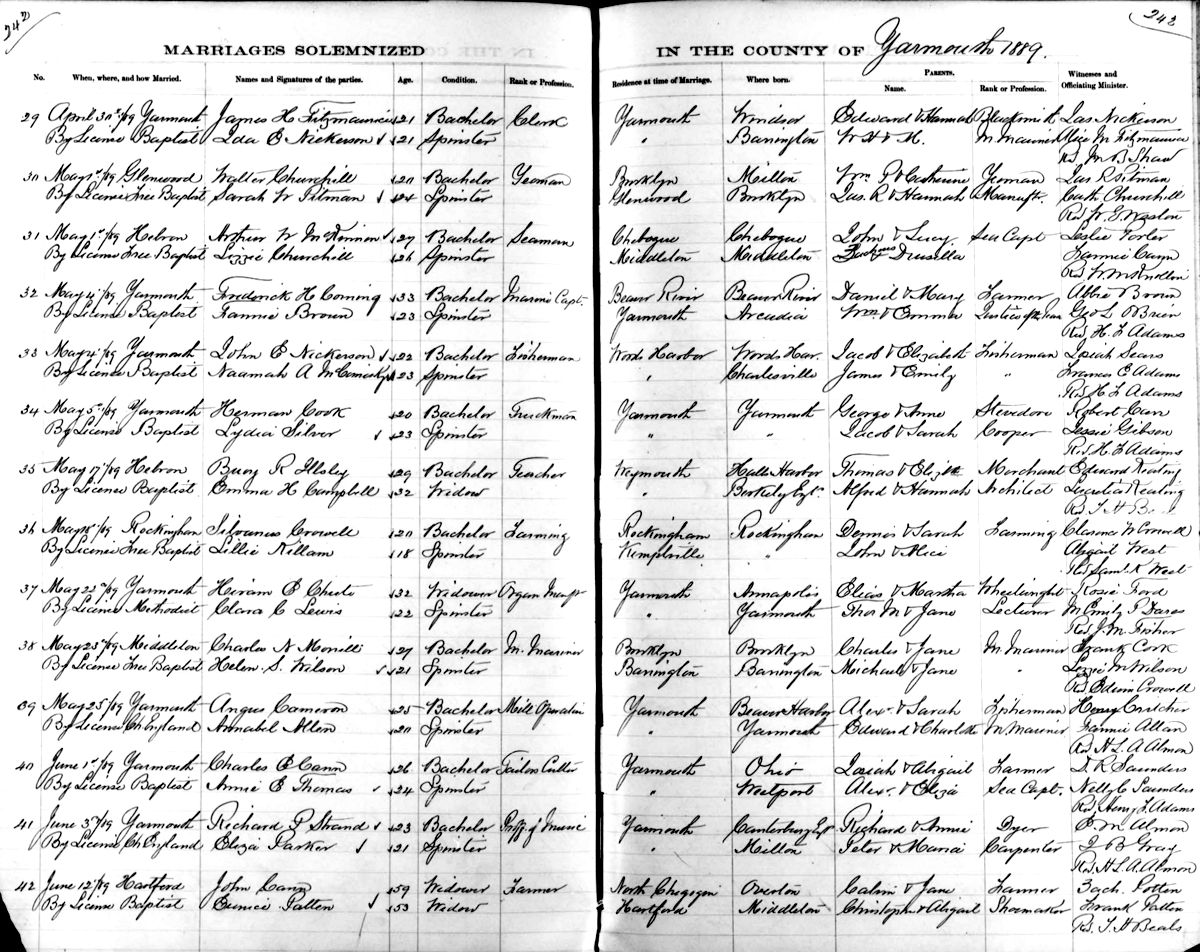 242
243
MARRIAGES SOLEMNIZED IN THE COUNTY OF Yarmouth 1889.
No. When, where, and how Married. Names and Signatures of the parties. Age. Condition. Rank or Profession. Residence at time of Marriage. Where born. PARENTS. Name. Rank or Profession. Witnesses and Officiating Minister.
29 April 30th/89 Yarmouth James H Fitzmaurice 21 Bachelor Clerk Yarmouth Windsor Edward & Hannah Blacksmith Jas Nickerson
By License Baptist Ida E Nickerson 21 Spinster " Barrington W H & M. M. Mariner Fitzmaurice
Rd. M B Shaw
30 May 1st/89 Glenwood Walter Churchill 20 Bachelor Yeoman Brooklyn Milton Wm P & Catherine Yeoman Jas R Pitman
By License Free Baptist Sarah W Pitman 24 Spinster Glenwood Brooklyn Jas. R & Hannah Manuft. Cath Churchill
Rd W. E. Weston
31 May 1st/89 Hebron Arthur W McKinnon 27 Bachelor Seaman Chebogue Chebogue John & Lucy Sea Capt Leslie Porter
By License Free Baptist Lizzie Churchill 26 Spinster Middleton Middleton Drusilla Fannie
Rd W.
32 May 4th/89 Yarmouth Frederick H Corning 33 Bachelor Marine Capt. Beaver River Beaver River Daniel & Mary Farmer Abbie Brown
By License Baptist Fannie Brown 23 Spinster Yarmouth Arcadia Wm & Emma Justice of the Geo L O'Brien
Rd. H. F Adams
33 May 4th/89 Yarmouth John E Nickerson 22 Bachelor Fisherman Woods Harbor Woods Har. Jacob & Elizabeth Fisherman Josiah Sears
By License Baptist Naamah A 23 Spinster " Charlesville James & Emily " Frances E Adams
Rd H F Adams
34 May 5th/89 Yarmouth Herman Cook 20 Bachelor Truckman Yarmouth Yarmouth George & Anne Stevedore Robert Carr
By License Baptist Lydia Silver 23 Spinster " " Jacob & Sarah Cooper Jessie Gibson
Rd H F Adams
35 May 17/89 Hebron R Illsley 29 Bachelor Teacher Weymouth Halls Harbor Thomas & Elizth Merchant Edward Keating
By License Baptist Emma H Campbell 32 Widow " Alfred & Hannah Architect Lucretia Keating
Rd. T. H
36 May 18/89 Rockingham Silvanus Crowell 20 Bachelor Farming Rockingham Rockingham Dennis & Sarah Farming Clarence W Crowell
By License Free Baptist Lillie Killam 18 Spinster Kemptville " John & Alice Abigail West
Rd Saml K West
37 May 22nd/89 Yarmouth Hiram E Chute 32 Widower Organ Manft Yarmouth Annapolis Elias & Martha Wheelwright Rosie Ford
By License Methodist Clara C Lewis 22 Spinster " Yarmouth Thos M & Jane Lecturer M Emily
Rd. J. M. Fisher
38 May 23rd/89 Middleton Charles N Morrill 27 Bachelor M. Mariner Brooklyn Brooklyn Charles & Jane M. Mariner Frank Cook
By License Free Baptist Helen S. Wilson 21 Spinster Barrington Barrington Michael & Jane " M Wilson
Rd Edwin Crowell
39 May 25/89 Yarmouth Angus Cameron 25 Bachelor Mill Operative Yarmouth Beaver Harbor Alex. & Sarah Fisherman Henry
By License Ch England Annabel Allen 20 Spinster " Yarmouth Edward & Charlotte M. Mariner Fannie Allan
Rd. H L. A Almon
40 June 1st/89 Yarmouth Charles E Cann 26 Bachelor Tailors Cutter Yarmouth Ohio Josiah & Abigail Farmer D. R Saunders
By License Baptist Annie E Thomas 24 Spinster " Westport Alex. & Eliza Sea Capt. Nelly C Saunders
Rd. Henry F. Adams
41 June 3rd/89 Yarmouth Richard P Strand 23 Bachelor Proff. of Music Yarmouth Canterbury Richard & Annie Dyer E. M Almon
By License Ch England Eliza Parker 21 Spinster " Milton Peter & Maria Carpenter J B Gray
Rd. H L. A. Almon
42 June 12th/89 Hartford John Cann 59 Widower Farmer North Chegoggin Overton Calvin & Jane Farmer Zach. Potten
By License Baptist Eunice Patten 53 Widow Hartford Middleton Christopher & Abigail Shoemaker Frank Patten
Rd. T. H Beals